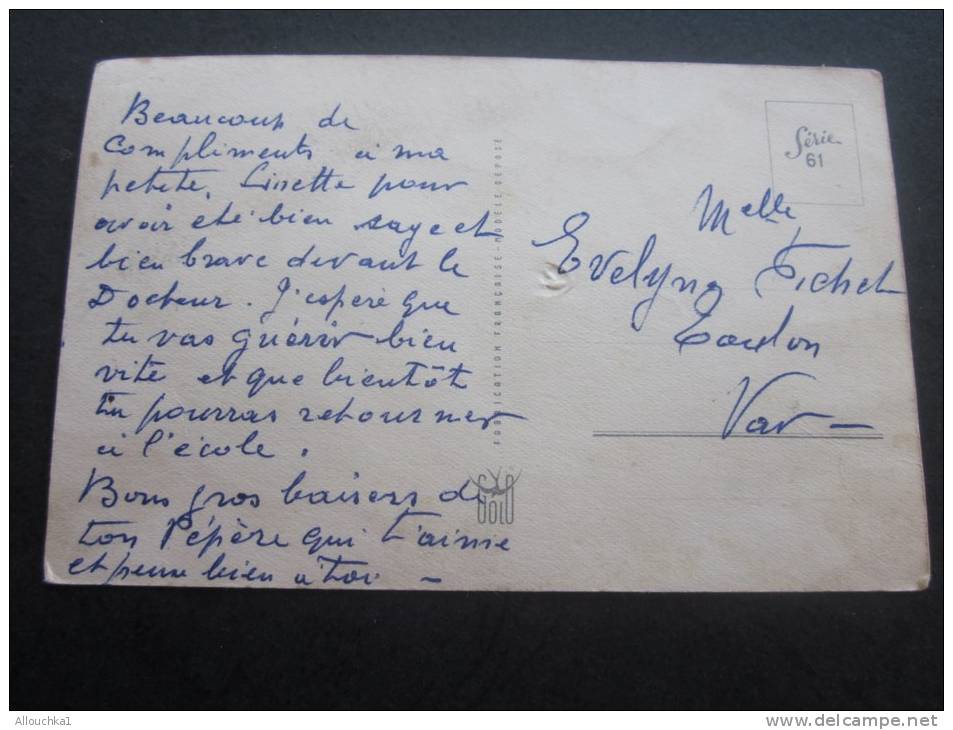 Beaucoup de
compliments à ma
petite Linette pour
avoir été bien sage et
bien brave devant le
Docteur. J'espère que
tu vas guérir bien
vite et que bientôt
tu pourras retourner
à l'école.
Bons gros baisers de
ton Pépère qui t'aime
et pense bien à toi —
FABRICATION FRANÇAISE - MODÈLE DÉPOSÉ
Série
61
Melle
Evelyne Fichet
Toulon
Var —
Allouchka1
www.delcampe.net